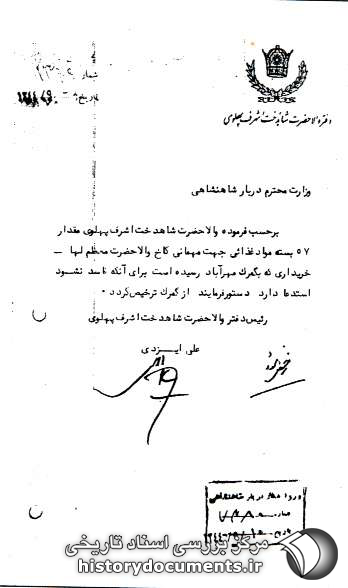 شماره
تاریخ
دفتر والاحضرت شاهدخت اشرف پهلوی
وزارت محترم دربار شاهنشاهی
برحسب فرموده والاحضرت شاهدخت اشرف پهلوی مقدار
۵۷ بسته مواد غذائی جهت مهمانی کاخ والاحضرت معظم لها ـ
خریداری که بگمرک مهرآباد رسیده است برای آنکه فاسد نشود
استدعا دارد دستور فرمایند از گمرک ترخیص گردد ۰
رئیس دفتر والاحضرت شاهدخت اشرف پهلوی
علی ایزدی
دربار شاهنشاهی
مرکز بررسی اسناد تاریخی
historydocuments.ir